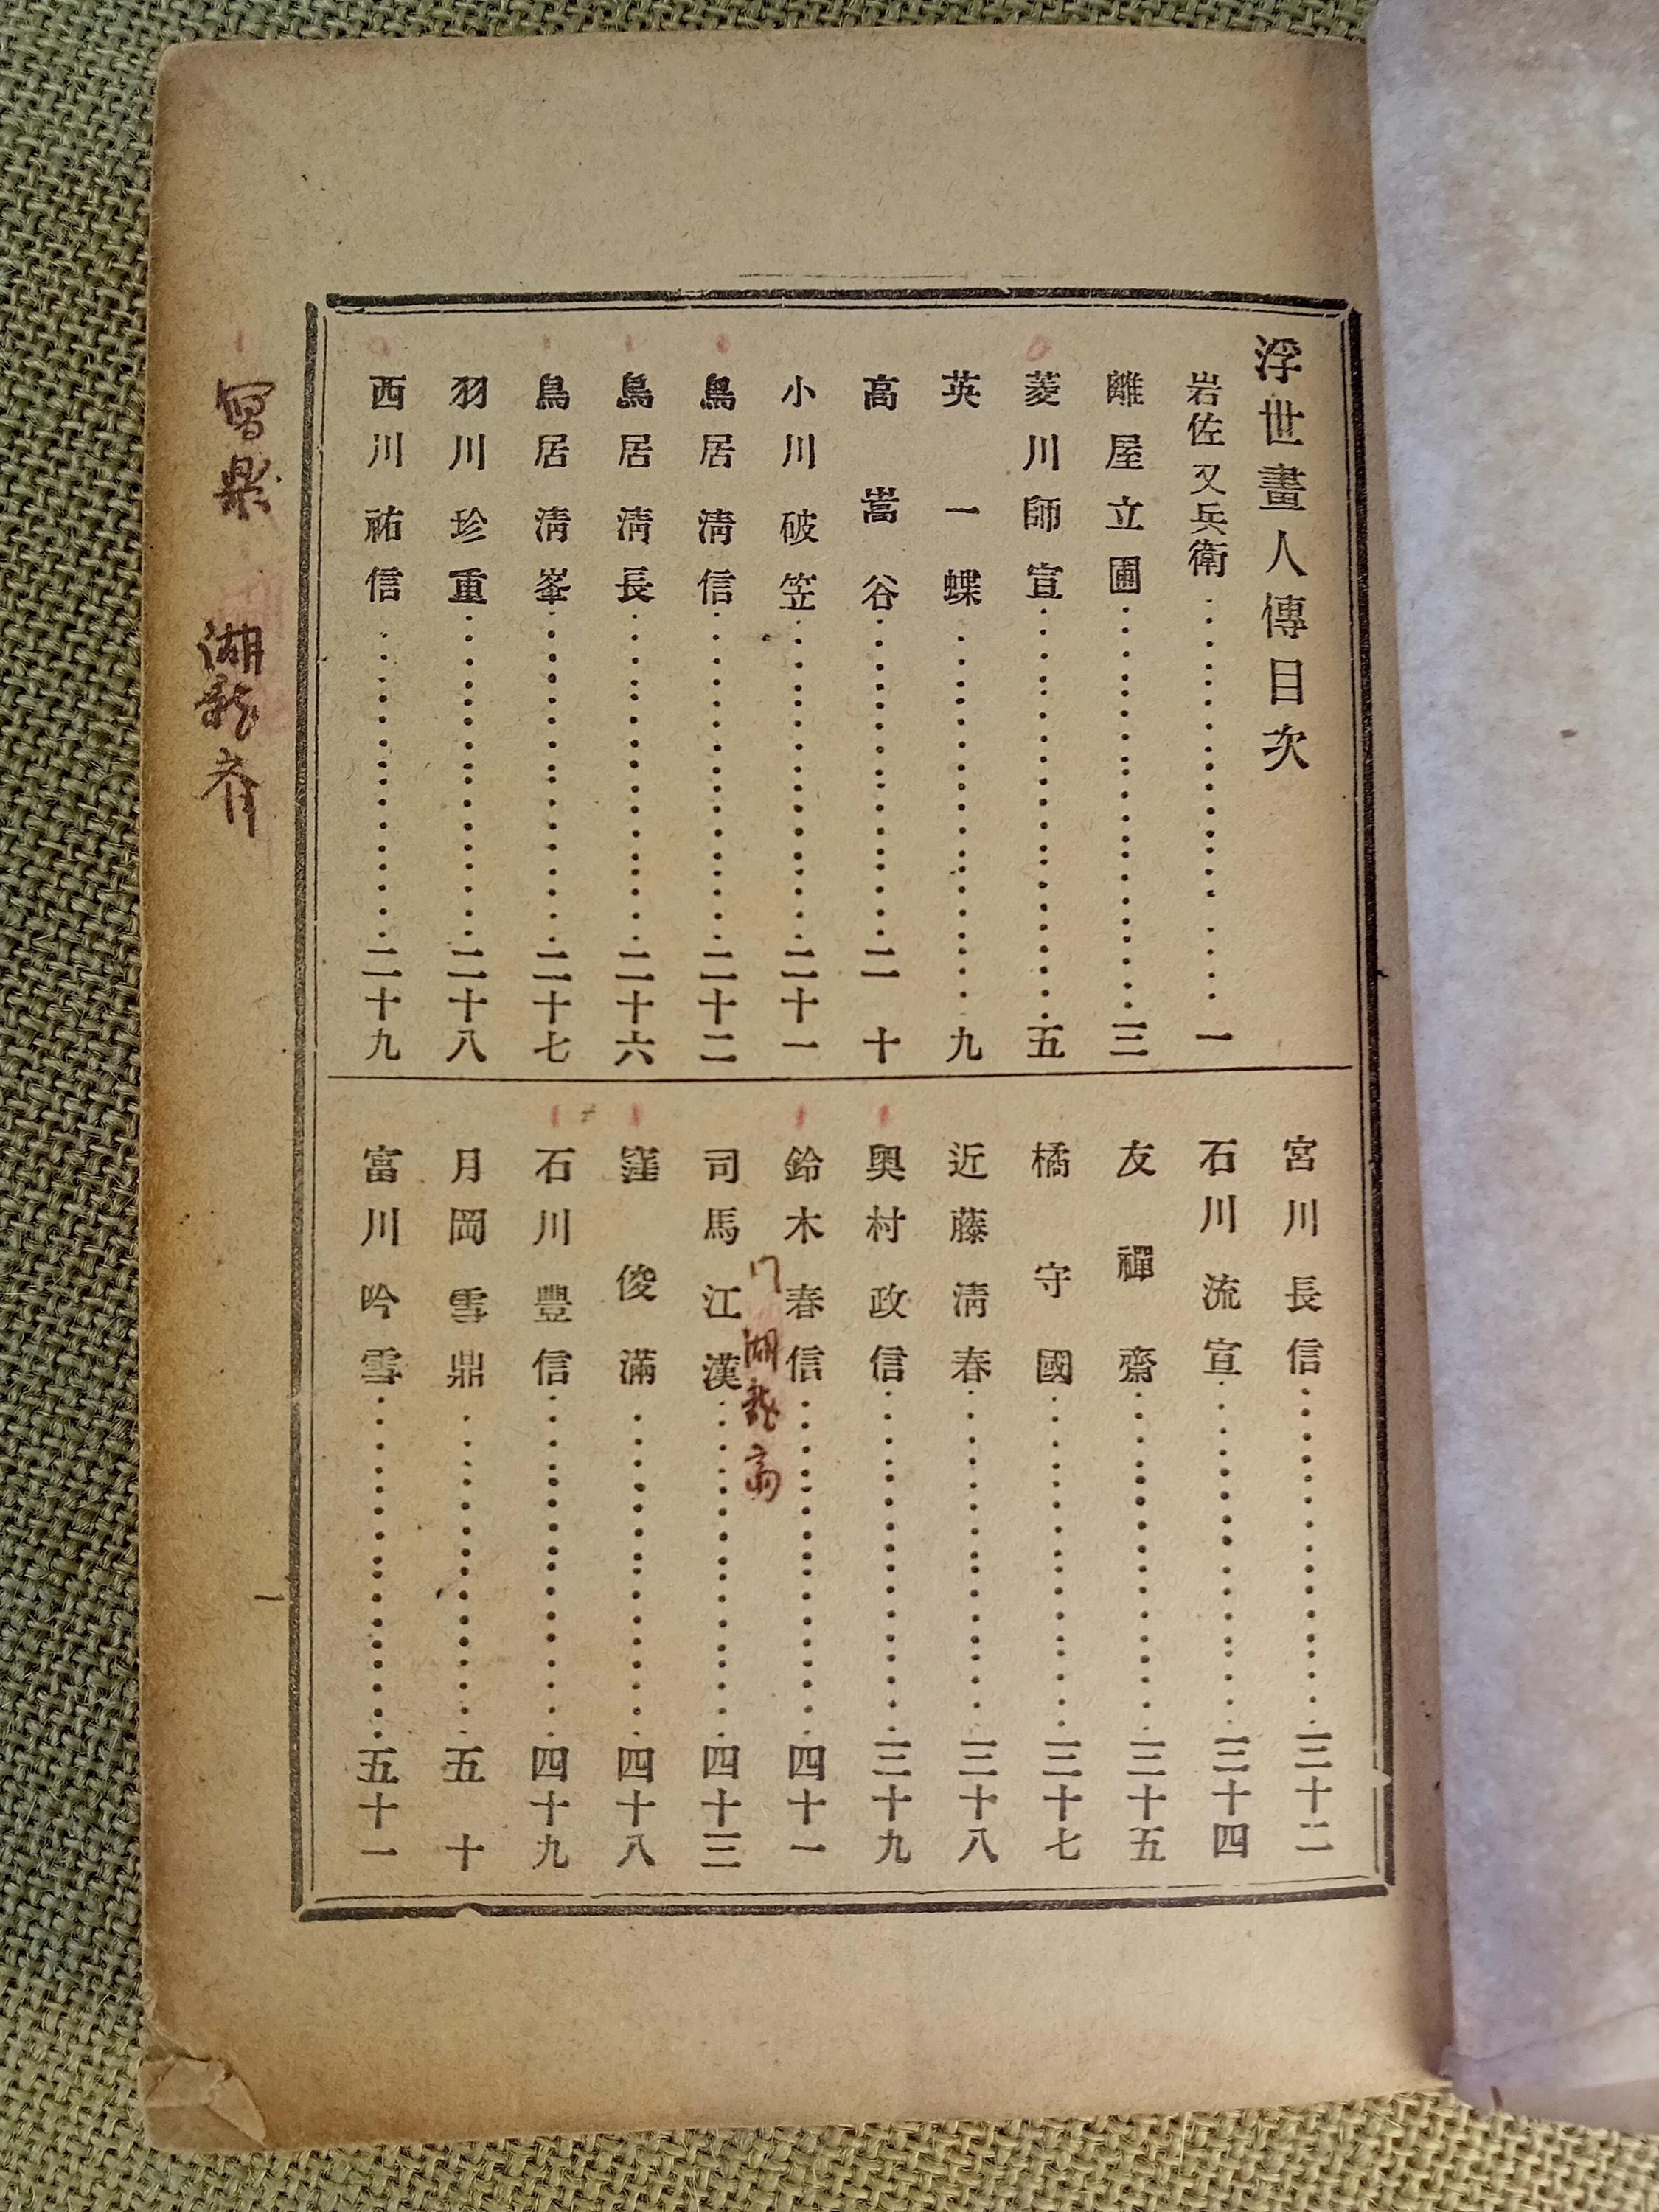 浮世畫人傳目次
岩佐又兵衛………一
雛屋立圃………三
菱川師宣………五
英一蝶………九
高嵩谷………二十
小川破笠………二十一
鳥居淸信………二十二
鳥居淸長………二十六
鳥居淸峯………二十七
羽川珍重………二十八
西川祐信………二十九
宮川長信………三十二
石川流宣………三十四
友禪齋………三十五
橘守國………三十七
近藤淸春………三十八
奧村政信………三十九
鈴木春信………四十一
湖龍斎
司馬江漢………四十三
窪俊滿………四十八
石川豐信………四十九
月岡雪鼎………五十
富川吟雪………五十一
湖龍斎
一